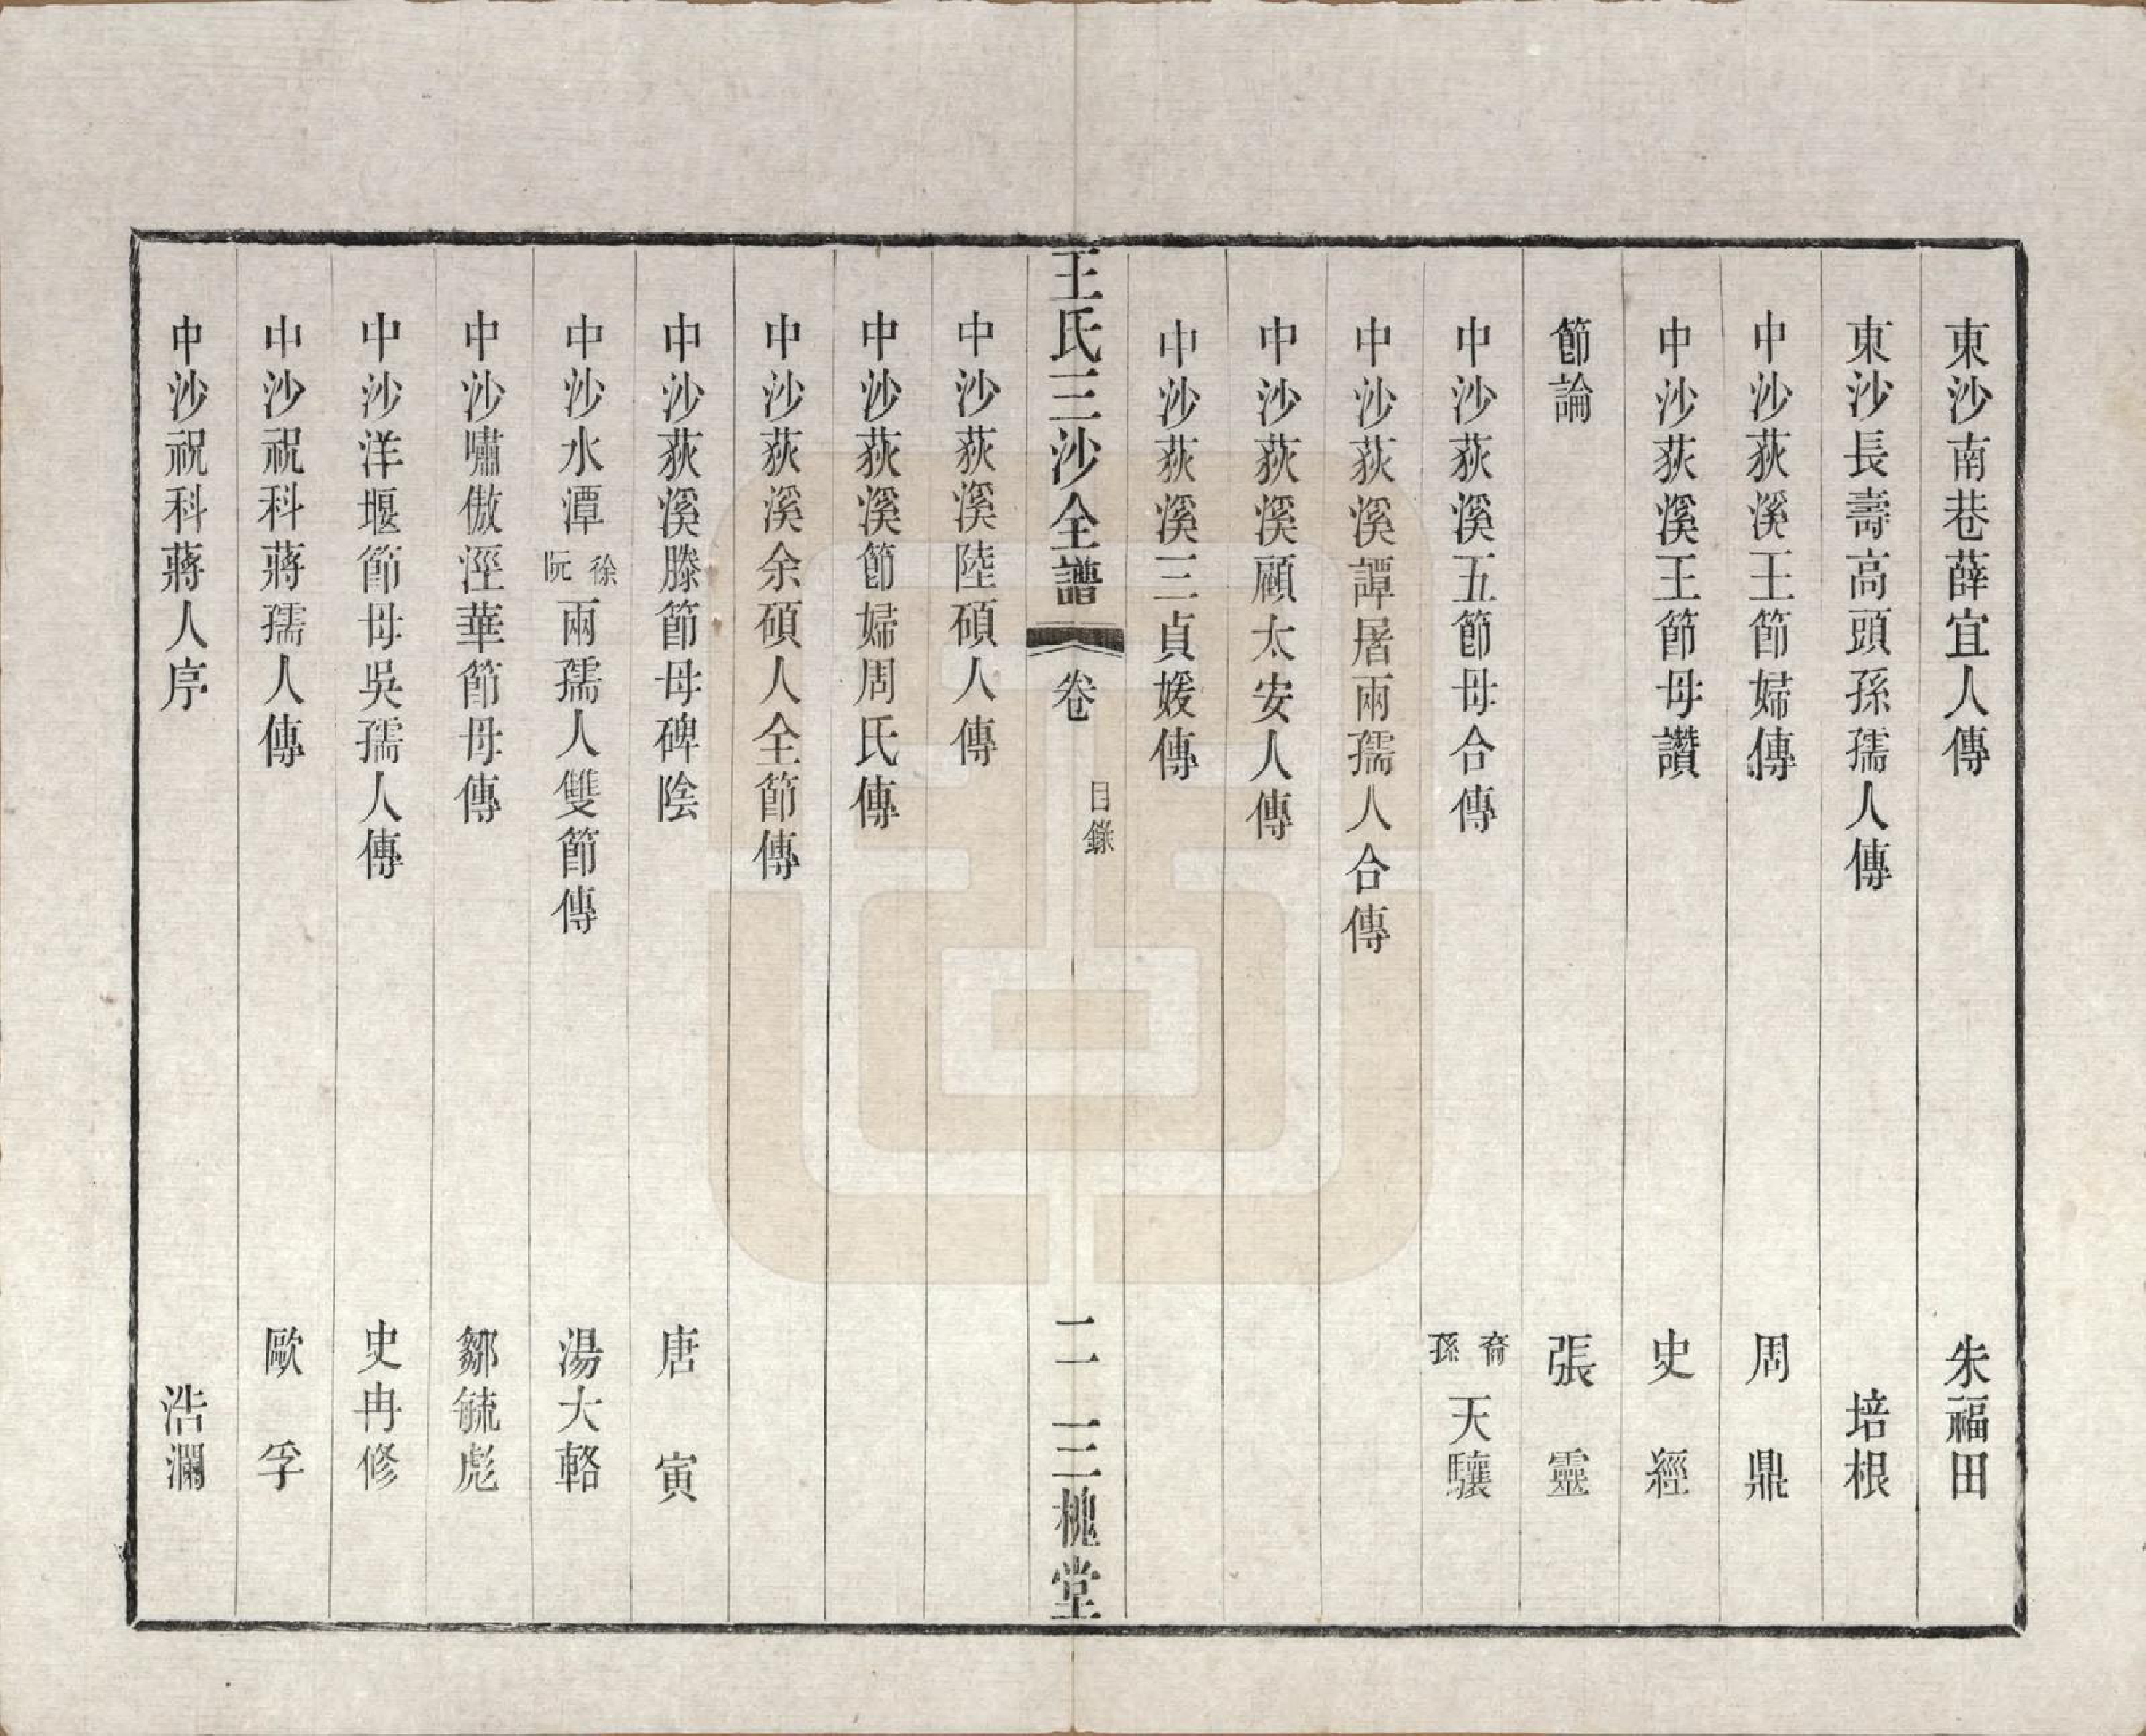 東沙南巷薛宜人傳 朱福田
東沙長壽高頭孫孺人傳 培根
中沙荻溪王節婦傳 周鼎
中沙荻溪王節母讚 史經
節論 張靈
中沙荻溪五節母合傳 裔孫天驤
中沙荻溪譚屠兩孺人合傳
中沙荻溪顧太安人傳
中沙荻溪三貞媛傳
王氏三沙全譜 卷 目錄 二 三槐堂
中沙荻溪陸碩人傳
中沙荻溪節婦周氏傳
中沙荻溪余碩人全節傳
中沙荻溪滕節母碑陰 唐寅
中沙水潭徐阮兩孺人雙節傳 湯大輅
中沙嘯傲涇華節母傳 鄒毓彪
中沙洋堰節母吳孺人傳 史冉修
中沙祝科蔣孺人傳 歐孚
中沙祝科蔣人序 浩瀾